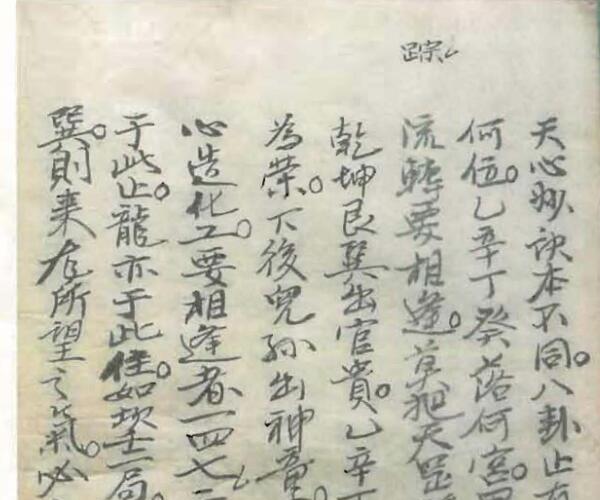 踪
天心妙訣本不同。八卦止有
何位。乙辛丁癸落何宮。
流轉要相逢。莫犯天罡
乾坤艮巽出官貴。乙辛丁
為榮。下後兒孫出神童
心造化工。要相逢者一四七二
于此止。龍亦于此住。如坎壬一局
巽。則來在所望之氣。必